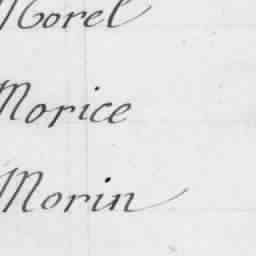 Morel
Morice
Morin